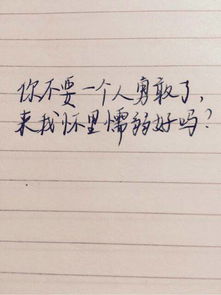 你不要一个人勇敢了，
来我怀里懦弱好吗？